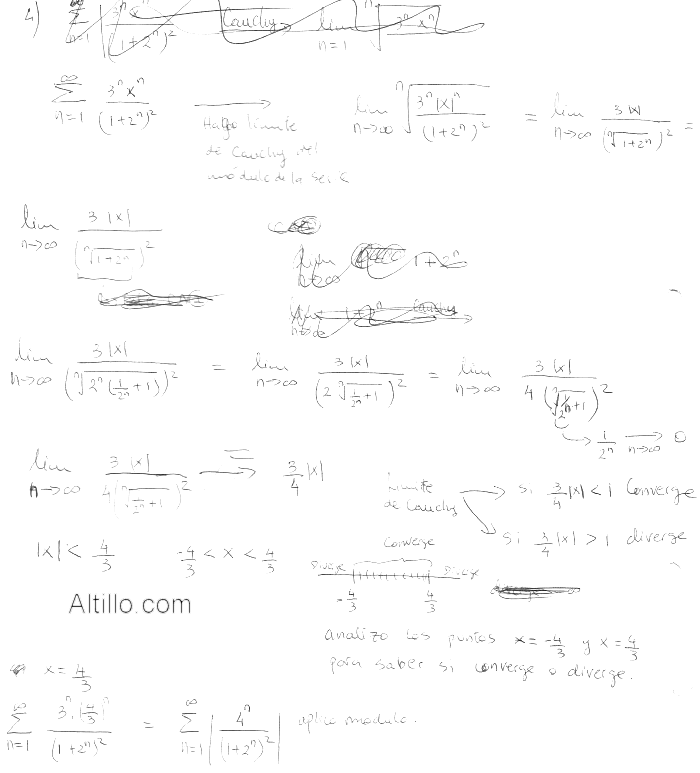 4) ∑_{n=1}^{∞} 3^n x^n / (1+2^n)^2 Cauchy lim n=1 ⁿ√ 3^n x^n
∑_{n=1}^{∞} 3^n x^n / (1+2^n)^2 → lim_{n→∞} ⁿ√(3^n |x|^n / (1+2^n)^2) = lim_{n→∞} 3|x| / (ⁿ√(1+2^n))^2 =
Hago límite
de Cauchy del
módulo de la
lim_{n→∞} 3|x| / (ⁿ√(1+2^n))^2
1+2^n
lim_{n→∞} 3|x| / (ⁿ√(2^n (1/2^n +1)))^2 = lim_{n→∞} 3|x| / (2 ⁿ√(1/2^n +1))^2 = lim_{n→∞} 3|x| / 4(ⁿ√(1/2^n +1))^2
→ 1/2^n →_{n→∞} 0
lim_{n→∞} 3|x| / 4(ⁿ√(1/2^n +1))^2 → 3/4 |x|
límite
de Cauchy
→ si 3/4 |x| < 1 Converge
→ si 3/4 |x| > 1 diverge
|x| < 4/3 -4/3 < x < 4/3
converge
diverge diverge
-4/3 4/3
Altillo.com
analizo los puntos x = -4/3 y x = 4/3
para saber si converge o diverge.
x = 4/3
∑_{n=1}^{∞} 3^n · |4/3|^n / (1+2^n)^2 = ∑_{n=1}^{∞} | 4^n / (1+2^n)^2 | aplico modulo.